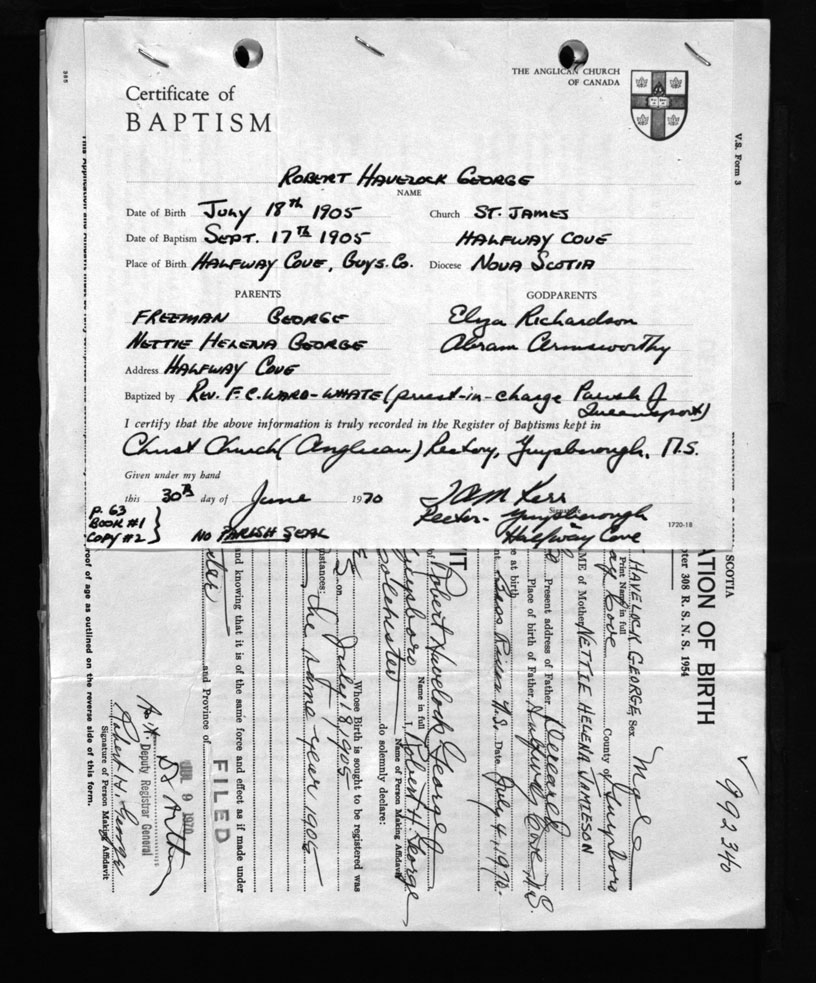 THE ANGLICAN CHURCH
OF CANADA
Certificate of
BAPTISM
ROBERT HAVELOCK GEORGE
NAME
Date of Birth JULY 18TH 1905 Church ST. JAMES
Date of Baptism SEPT. 17TH 1905 HALFWAY COVE
Place of Birth HALFWAY COVE, GUYS. CO. Diocese NOVA SCOTIA
PARENTS GODPARENTS
FREEMAN GEORGE Elyza Richardson
NETTIE HELENA GEORGE Abram Armsworthy
Address HALFWAY COVE
Baptized by REV. F. C. WARD-WHATE (priest-in-charge Parish of
Queensport)
I certify that the above information is truly recorded in the Register of Baptisms kept in
Christ Church (Anglican) Rectory, Guysborough, N.S.
Given under my hand
this 30th day of June 1970 Kerr
Rector - Guysborough
Halfway Cove
1720-18
P. 63
BOOK #1
COPY #2
NO PARISH SEAL
V.S. Form 3
SCOTIA
ATION OF BIRTH
ter 308 R. S. N. S. 1954
992340
HAVELOCK GEORGE Sex Male
Print Name in full
ay Cove County of Guysboro
ME of Mother NETTIE HELENA JAMIESON
Present address of Father Deceased
Place of birth of Father Halfway Cove N.S.
e at birth
Bass River N.S. Date July 4, 1970.
IT
of Robert Havelock George
Name in full
Guysboro I, Robert H. George
Name of Person Making Affidavit
Colchester do solemnly declare:
Whose Birth is sought to be registered was
on July 18, 1905
nstances:
the same year 1905
and knowing that it is of the same force and effect as if made under
and Province of
FILED
JUL 9 1970
Deputy Registrar General
Robert H. George
Signature of Person Making Affidavit
roof of age as outlined on the reverse side of this form.